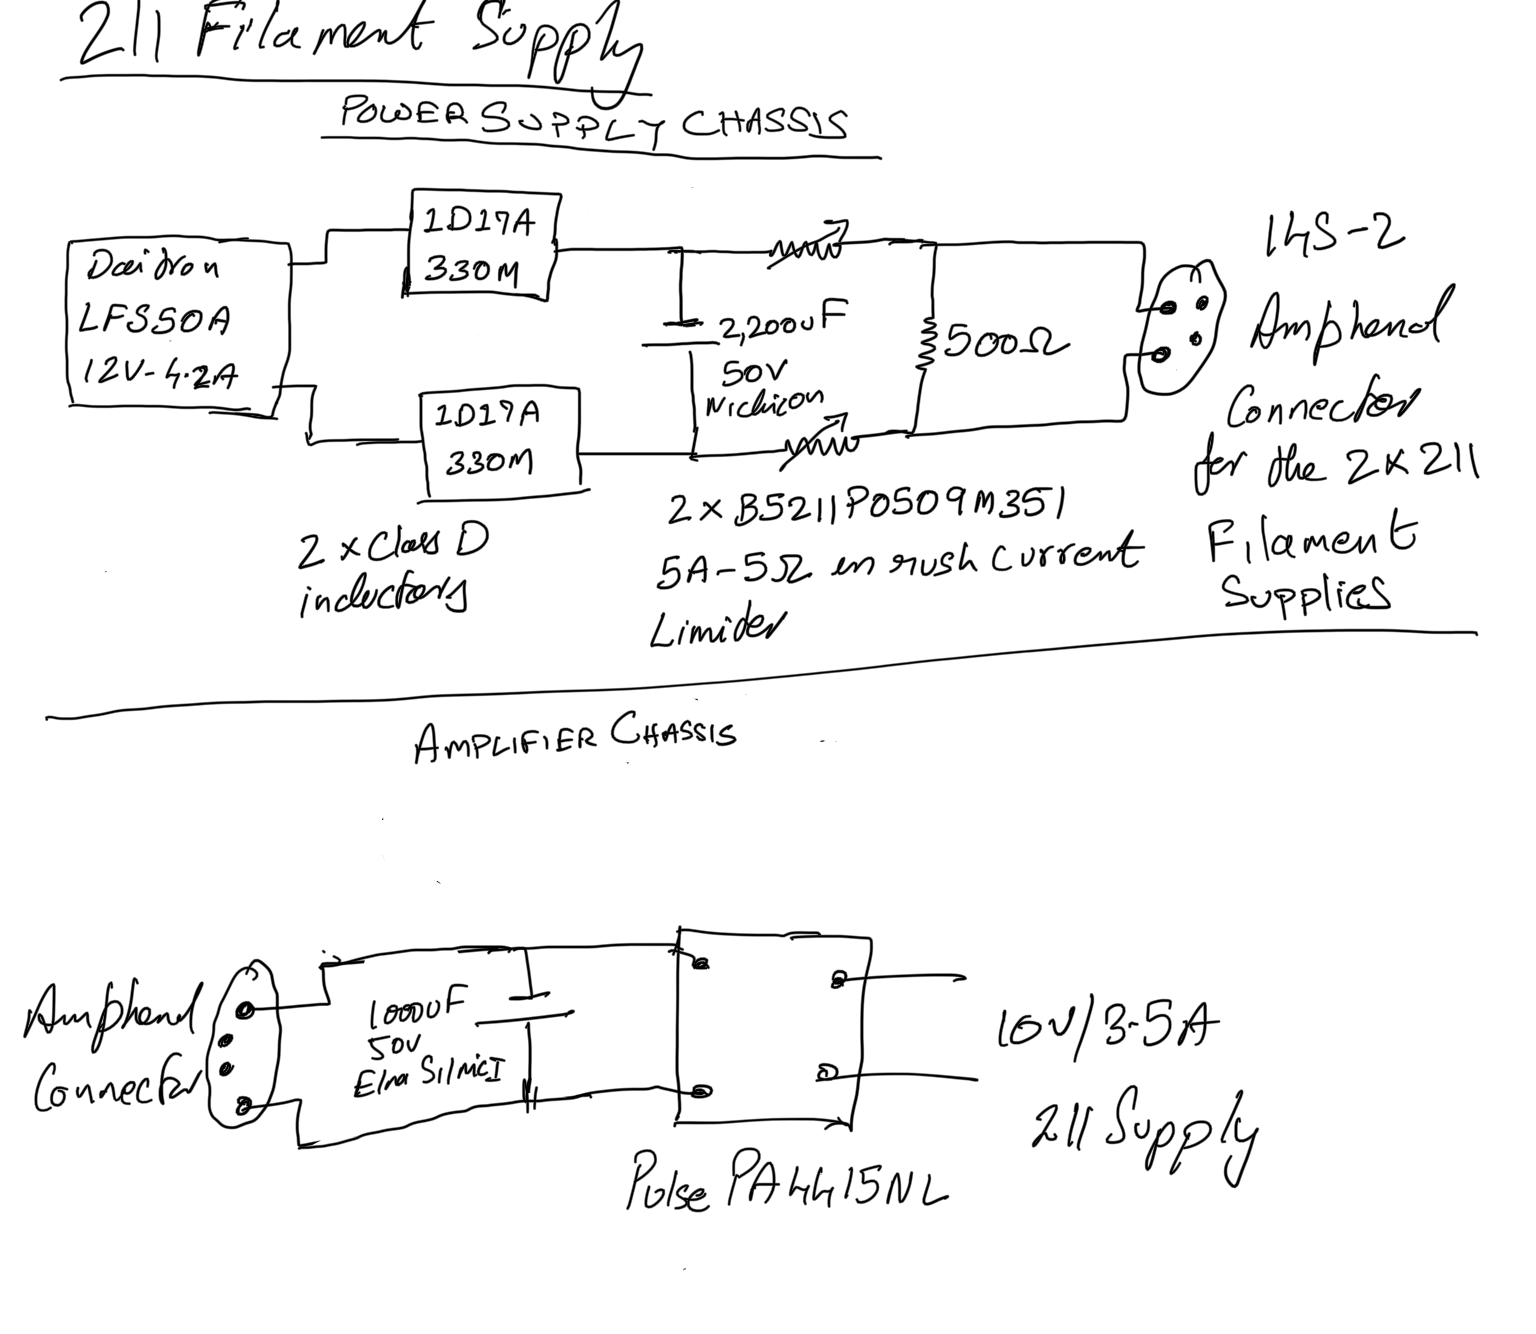 211 Filament Supply
POWER SUPPLY CHASSIS
Daitron
LFS50A
12V-4.2A
1D17A
330M
1D17A
330M
2 x Class D
inductors
2,200uF
50V
Nichicon
500Ω
2 x B5211P0509M351
5A-5Ω in rush Current
Limider
14S-2
Amphenol
Connector
for the 2x211
Filament
Supplies
AMPLIFIER CHASSIS
Amphenol
Connector
1000uF
50V
Elna SilmicI
Pulse PA4415NL
10V/3.5A
211 Supply